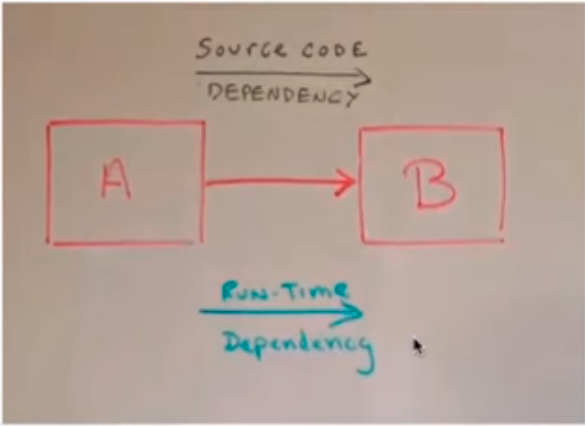 Source CODE
DEPENDENCY
A
B
Run-Time
Dependency